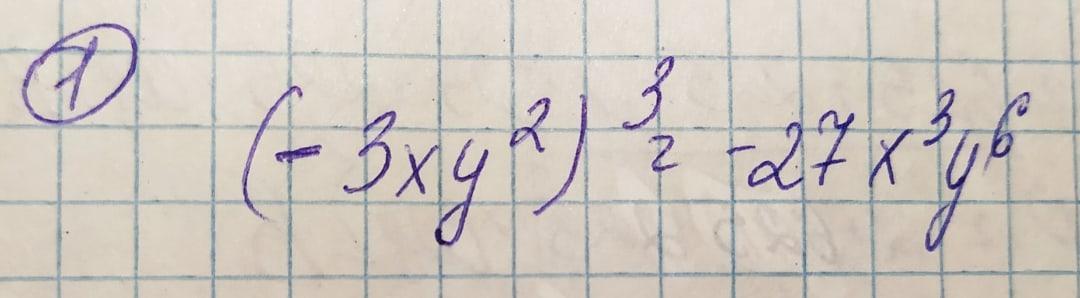 ① (-3xy²)³ = -27x³y⁶